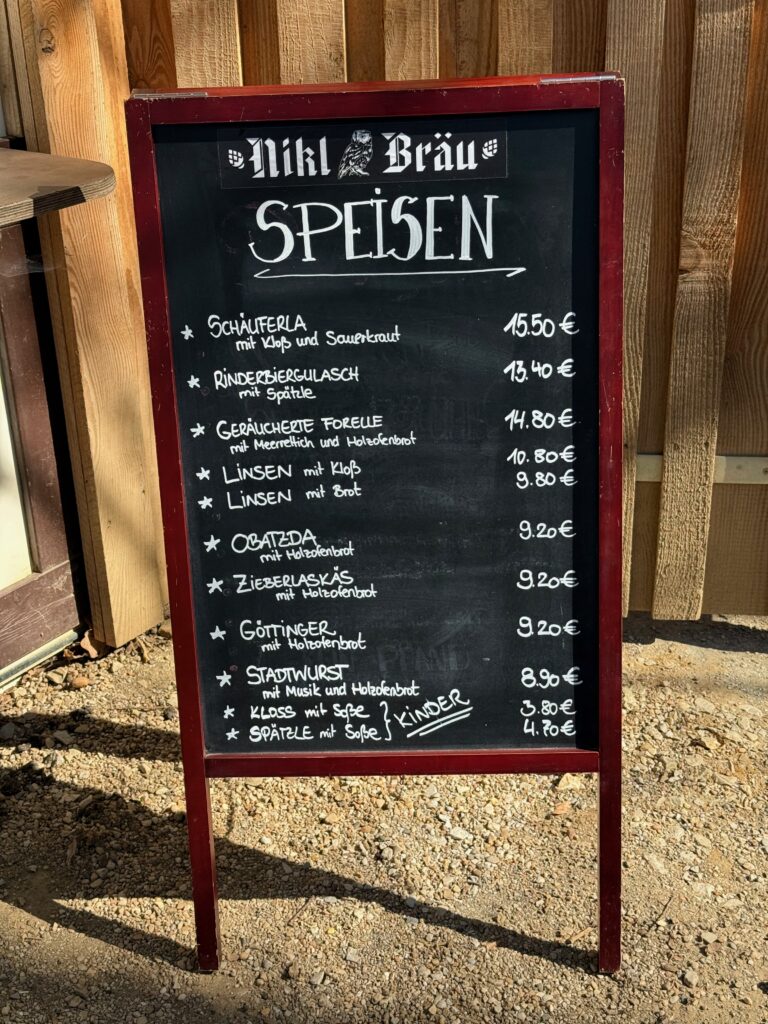 Nikl Bräu
SPEISEN
* SCHÄUFERLA 15.50 €
mit Kloß und Sauerkraut
* RINDERBIERGULASCH 13.40 €
mit Spätzle
* GERÄUCHERTE FORELLE 14.80 €
mit Meerrettich und Holzofenbrot
* LINSEN mit Kloß 10.80 €
* LINSEN mit Brot 9.80 €
* OBATZDA 9.20 €
mit Holzofenbrot
* ZIEBERLASKÄS 9.20 €
mit Holzofenbrot
* GÖTTINGER 9.20 €
mit Holzofenbrot
* STADTWURST 8.90 €
mit Musik und Holzofenbrot
* KLOSS mit Soße } KINDER 3.80 €
* SPÄTZLE mit Soße 4.70 €